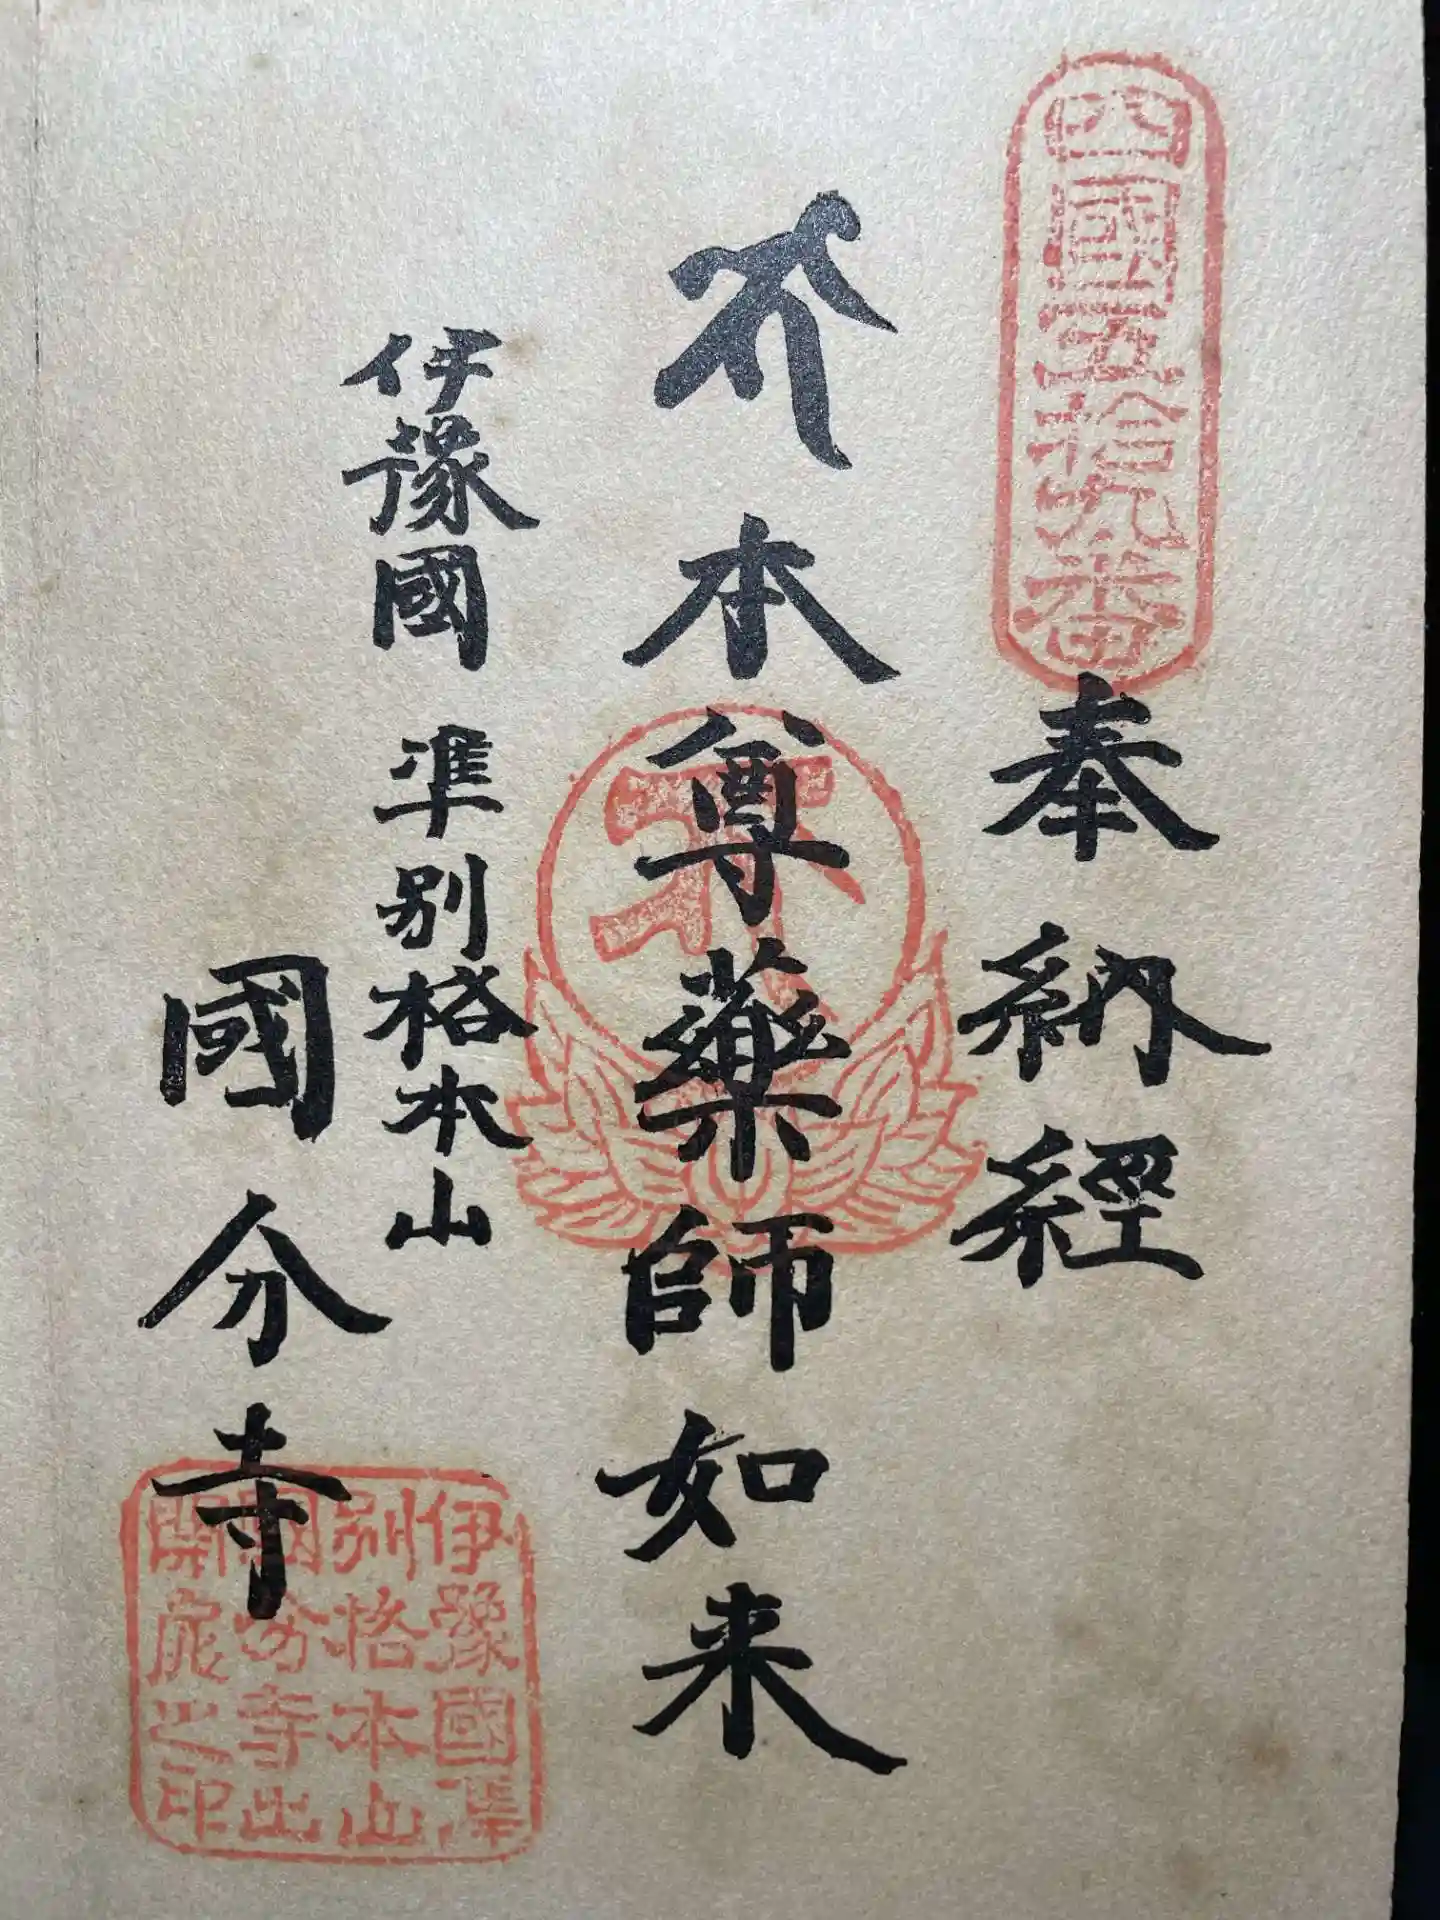 四國五拾九番
奉納経
本尊藥師如来
伊豫國 準別格本山
國分寺
伊豫國準
別格本山
國分寺出
開帳之印